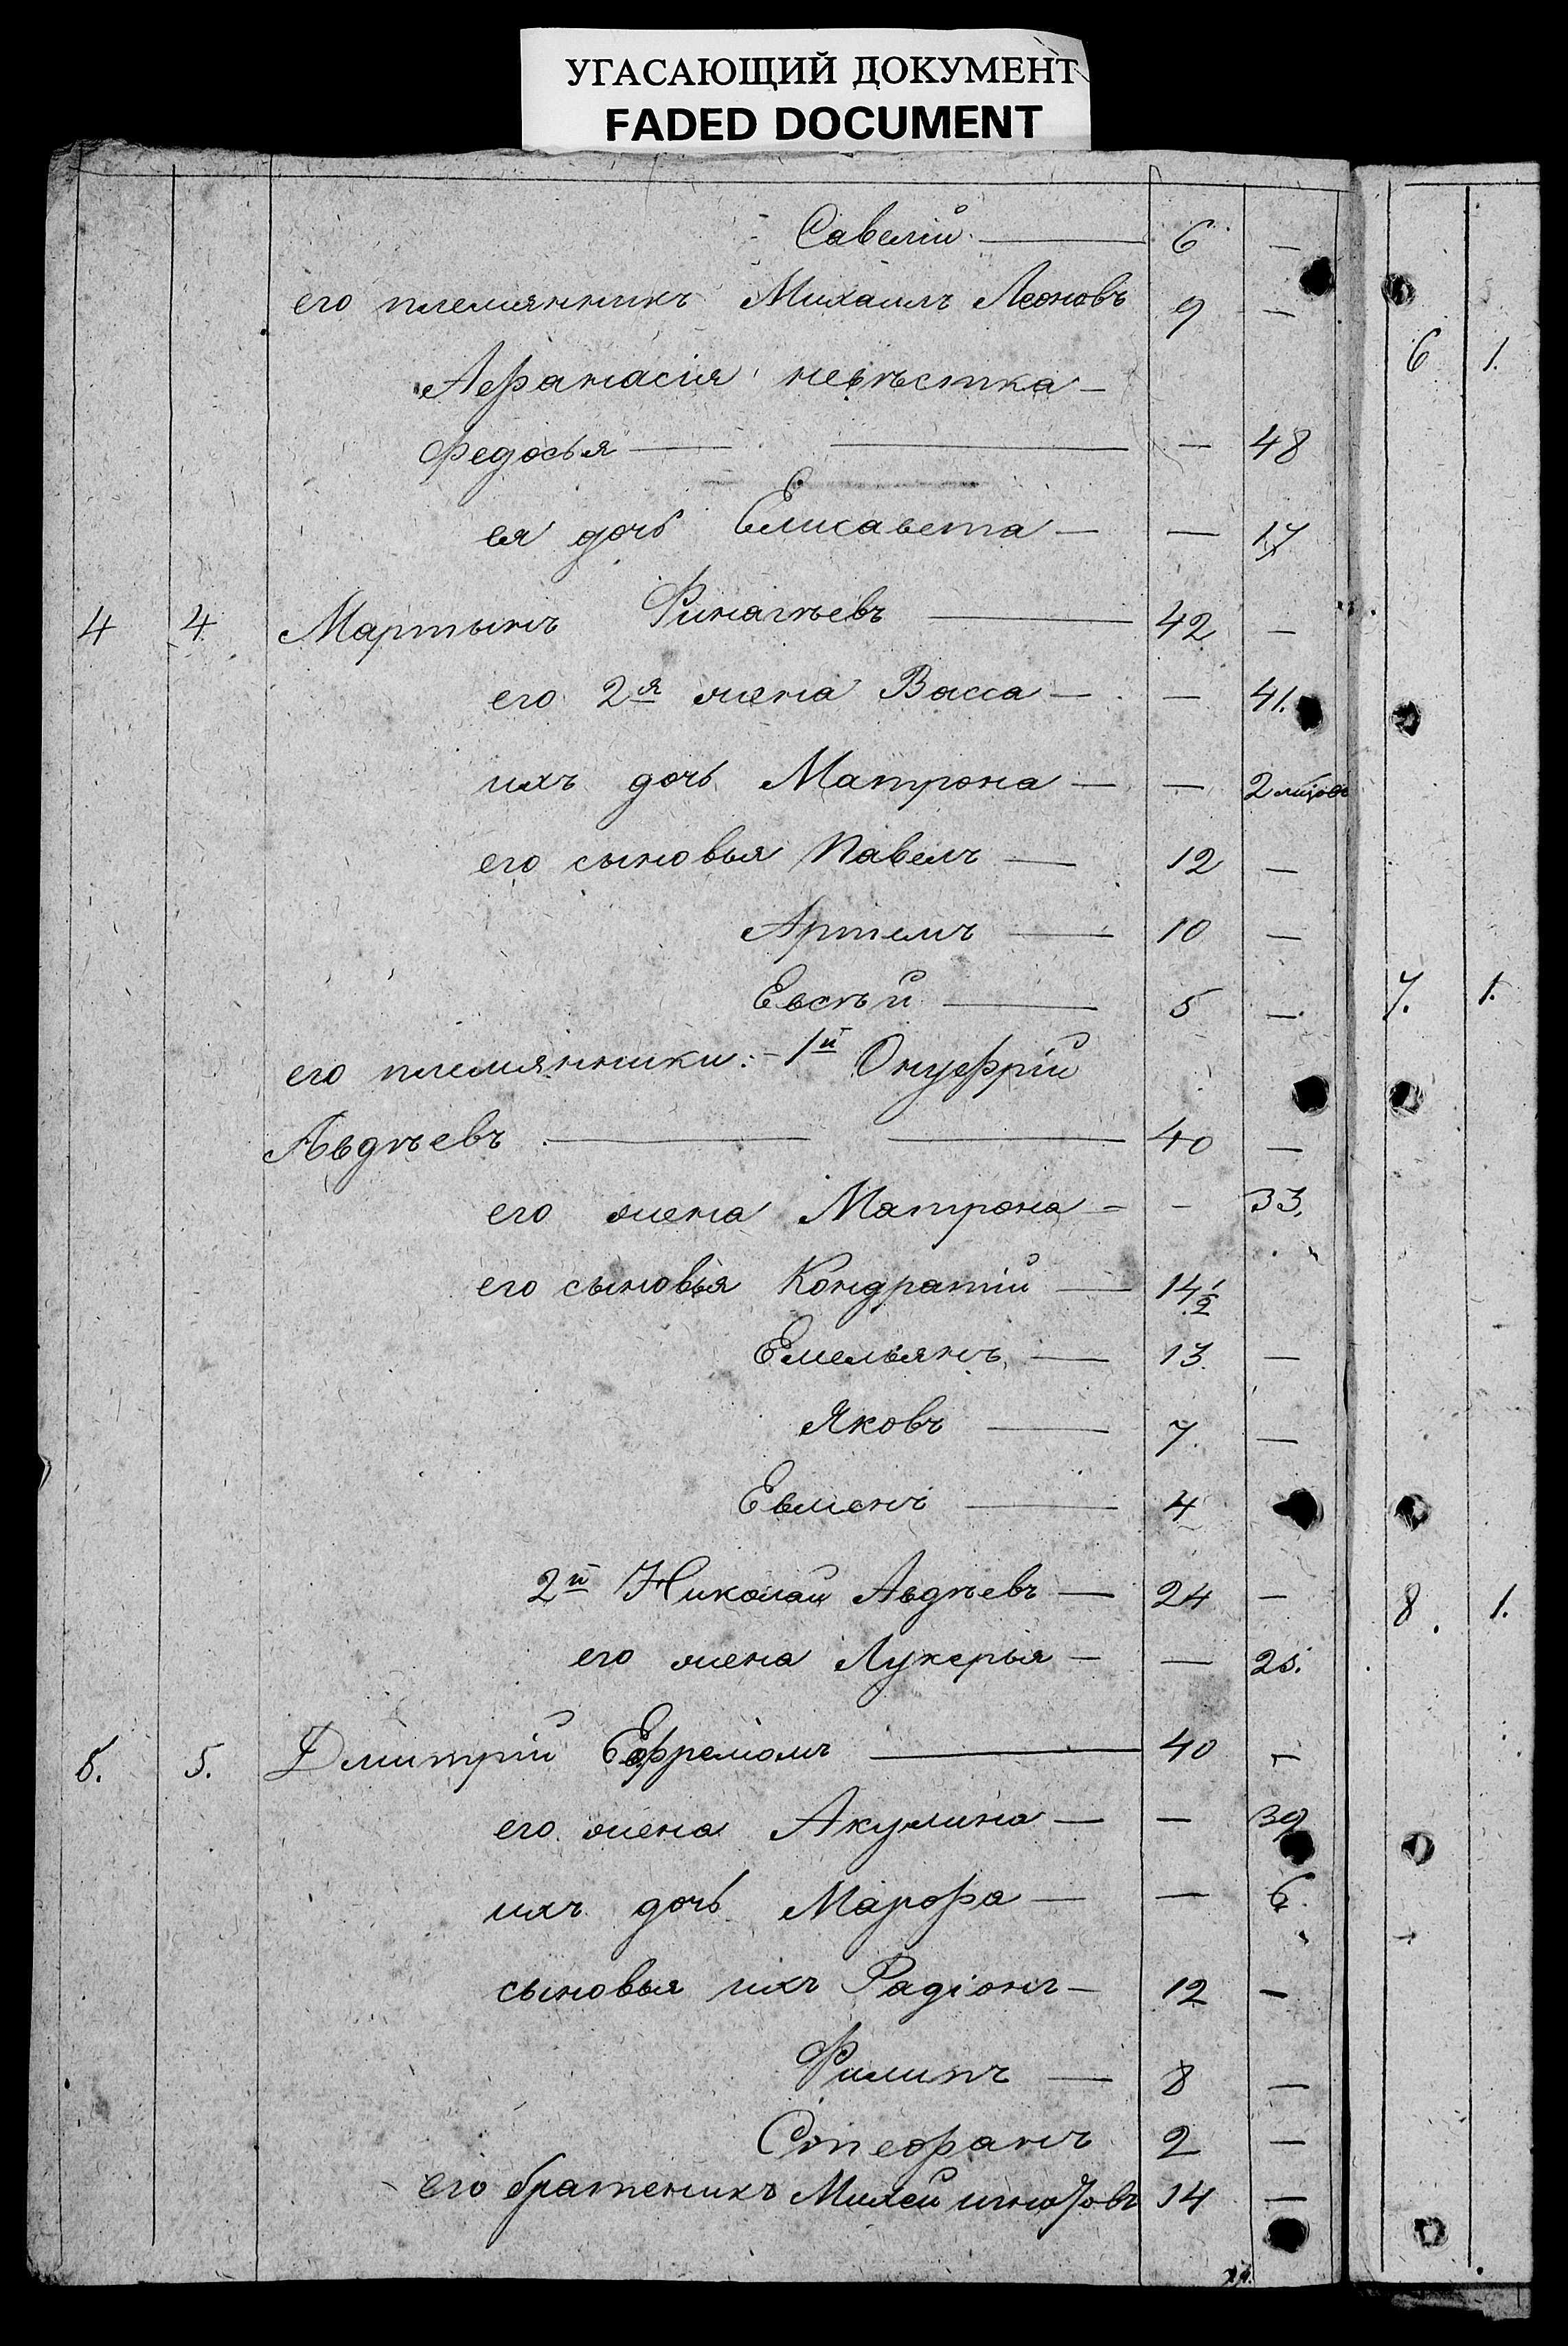 УГАСАЮЩИЙ ДОКУМЕНТ
FADED DOCUMENT
Савелій — 6 —
его племянникъ Михаилъ Леоновъ 9 —
Афанасія невѣстка —
Федосья — — — 48
ея дочь Елисавета — — 17
4 4 Мартынъ Финагѣевъ — 42 —
его 2я жена Васса — — 41.
ихъ дочь Матрона — — 2
его сыновья Павелъ — 12 —
Артемъ — 10 —
Евсѣй — 5 —
его племянники: - 1й Онуфрій
Авдѣевъ — — 40 —
его жена Матрона — - 33.
его сыновья Кондратій — 14 1/2
Емельянъ — 13 —
Яковъ — 7. —
Евменъ — 4
2й Николай Авдѣевъ — 24 —
его жена Лукерья — — 25.
5. 5. Дмитрій Ефремомъ — 40 —
его жена Акулина — — 39
ихъ дочь Марфа — — 6
сыновья ихъ Радіонъ — 12 —
Филипъ — 8 —
Стефанъ 2 —
его братеникъ 14 —
6 1.
7. 1.
8. 1.